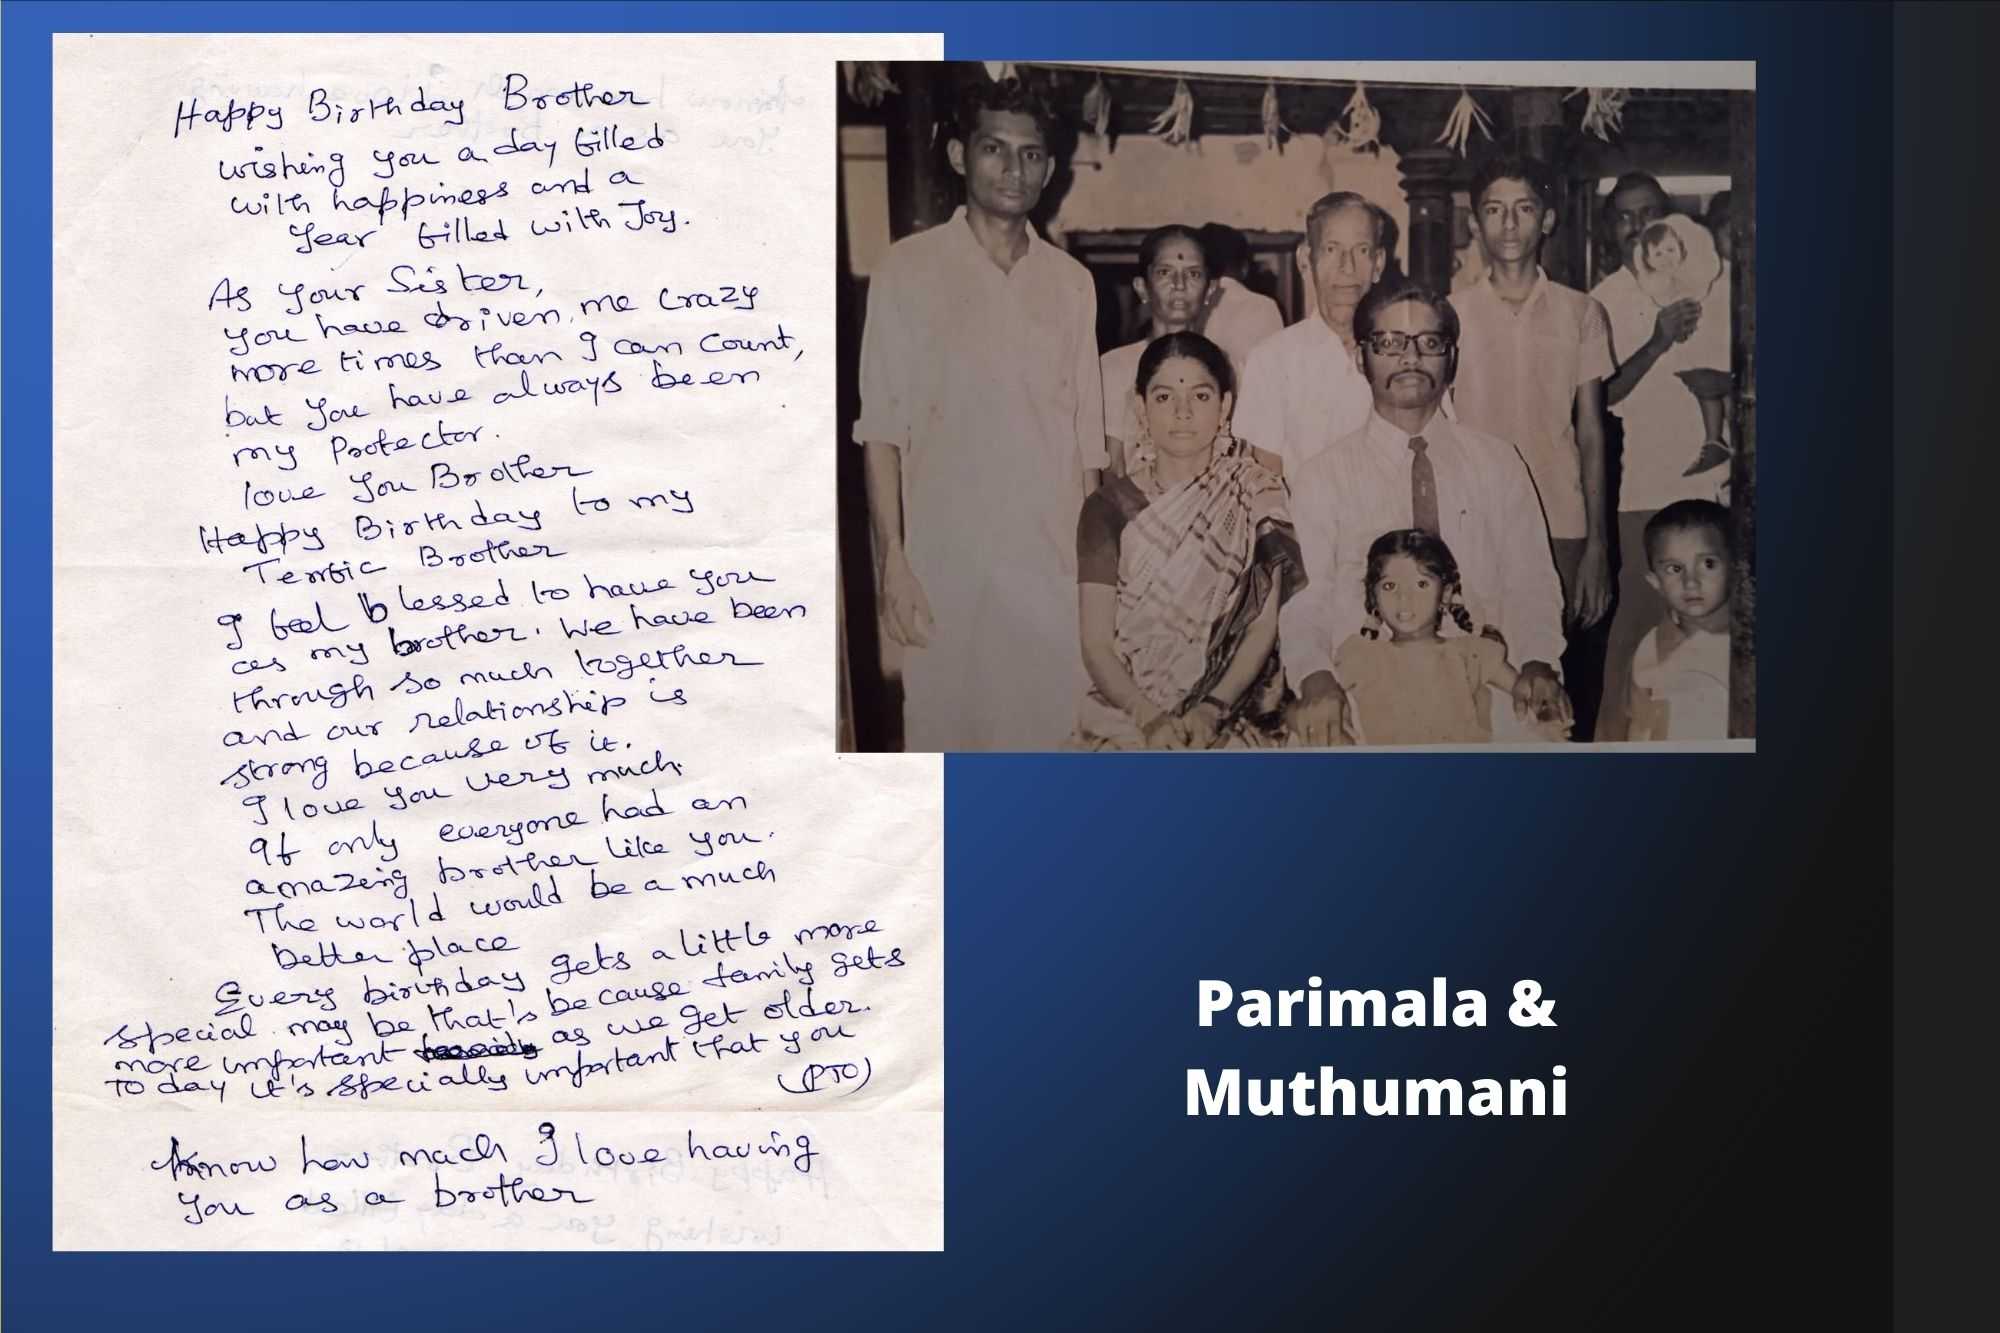 Happy Birthday Brother
wishing you a day filled
with happiness and a
year filled with Joy.
As your Sister,
you have driven me crazy
more times than I can count,
but you have always been
my Protector.
love you Brother
Happy Birthday to my
Terrific Brother
I feel blessed to have you
as my brother. We have been
through so much together
and our relationship is
strong because of it.
I love you very much.
If only everyone had an
amazing brother like you.
The world would be a much
better place
Every birthday gets a little more
special. may be that's because family gets
more important as we get older.
To day it's specially important that you
(PTO)
know how much I love having
you as a brother
Parimala &
Muthumani